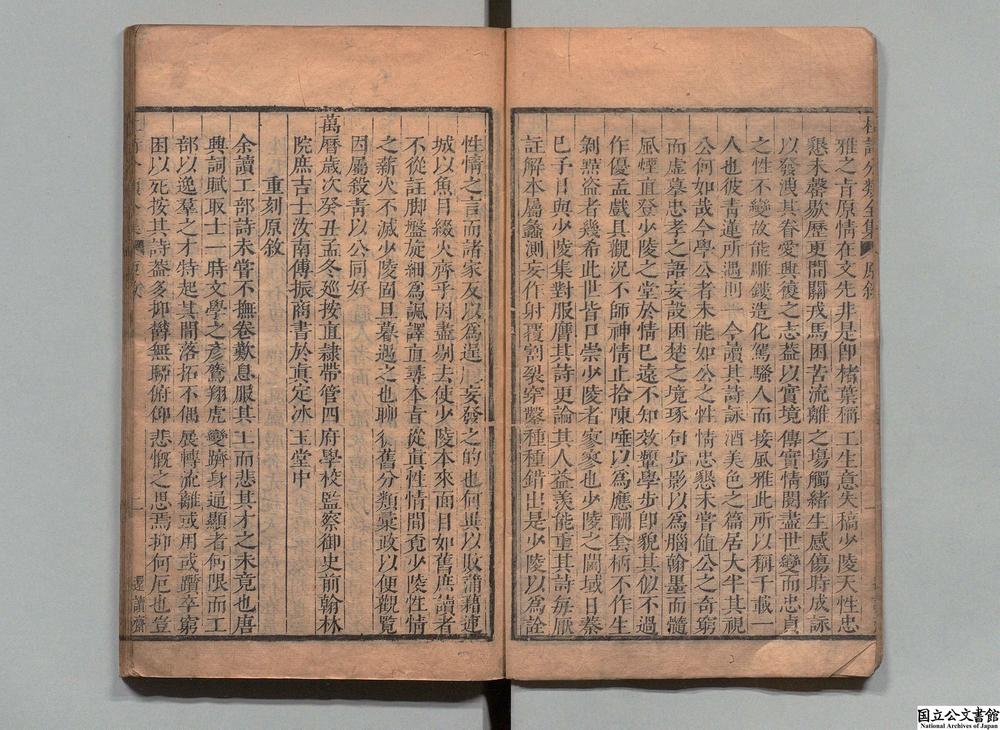 杜詩分類全集 原敘
雅之旨原情在文先非是即楮葉稱工生意失稿少陵天性忠
懇未罄歇歷更間關戎馬困苦流離之場觸緒生感傷時成詠
以發洩其眷愛興復之志葢以實境傳實情閱盡世變而忠貞
之性不變故能雕鏤造化駕騷人而接風雅此所以稱千載一
人也彼青蓮所遇則一今讀其詩詠酒美色之篇居大半其視
公何如哉今學公者未能如公之性情忠懇未嘗值公之奇窮
而虛摹忠孝之語妄設困楚之境琢句步影以為腦翰墨而髓
風煙直登少陵之堂於情巳遠不知效顰學步即貌其似不過
作優孟戲具觀況不師神情止拾陳唾以為應酬套柄不作生
剝點盜者幾希此世皆口崇少陵者寥寥也少陵之閫域日蓁
巳予日與少陵集對服膺其詩更論其人益羨能重其詩每厭
註解本屬蠡測妄作射覆割裂穿鑿種種錯出是少陵以為詮
性情之言而諸家反以為逞臆妄發之的也何異以敗蒲藉連
城以魚目綴火齊乎因盡剔去使少陵本來面目如舊庶讀者
不從註脚盤旋細為諷譯直尋本旨從眞性情間覓少陵性情
之薪火不滅少陵固旦暮遇之也聊從舊分類彙政以便觀覽
因屬殺青以公同好
萬曆歲次癸丑孟冬廵按直隸帶管四府學校監察御史前翰林
院庶吉士汝南傅振商書於眞定冰玉堂中
重刻原敘
余讀工部詩未嘗不撫卷歎息服其工而悲其才之未竟也唐
典詞賦取士一時文學之彥鶱翔虎變躋身通顯者何限而工
部以逸羣之才特起其間落拓不偶展轉流離或用或躓卒窮
困以死按其詩葢多抑鬱無聊俯仰悲慨之思焉抑何厄也豈